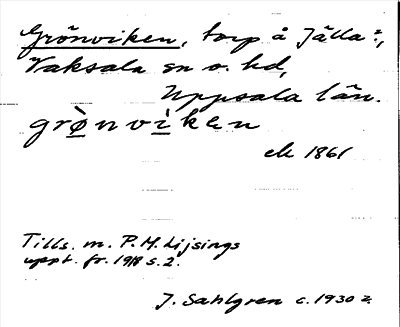 Grönviken, torp å Jälla ²,
Vaksala sn o. hd,
Uppsala län.
grø̀nvìken
ek 1861
Tills. m. P. M. Lijsings
uppt. fr. 1918 s. 2.
J. Sahlgren c. 1930 z.